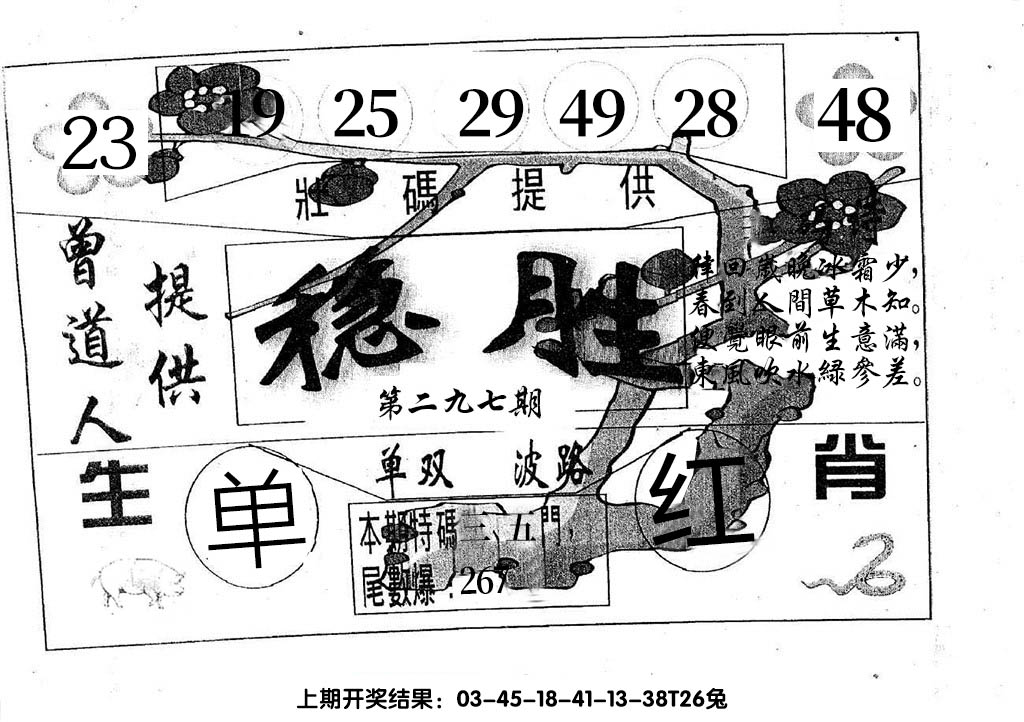 23 19 25 29 49 28 48
壯碼提供
曾道人
提供
稳胜
第二九七期
律回歲晚冰霜少，
春到人間草木知。
便覺眼前生意滿，
東風吹水綠參差。
单双 波路
生肖
单
红
本期特碼三、五門，
尾數爆：267
上期开奖结果：03-45-18-41-13-38T26兔